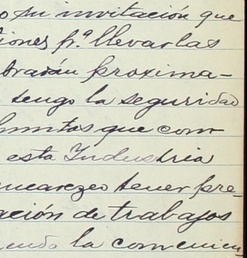 o su invitación que
ciones pª llevarlas
brarán proxima-
tengo la seguridad
untos que com
esta Industria
encarezco tener pre-
ación de trabajos
endo la convenien